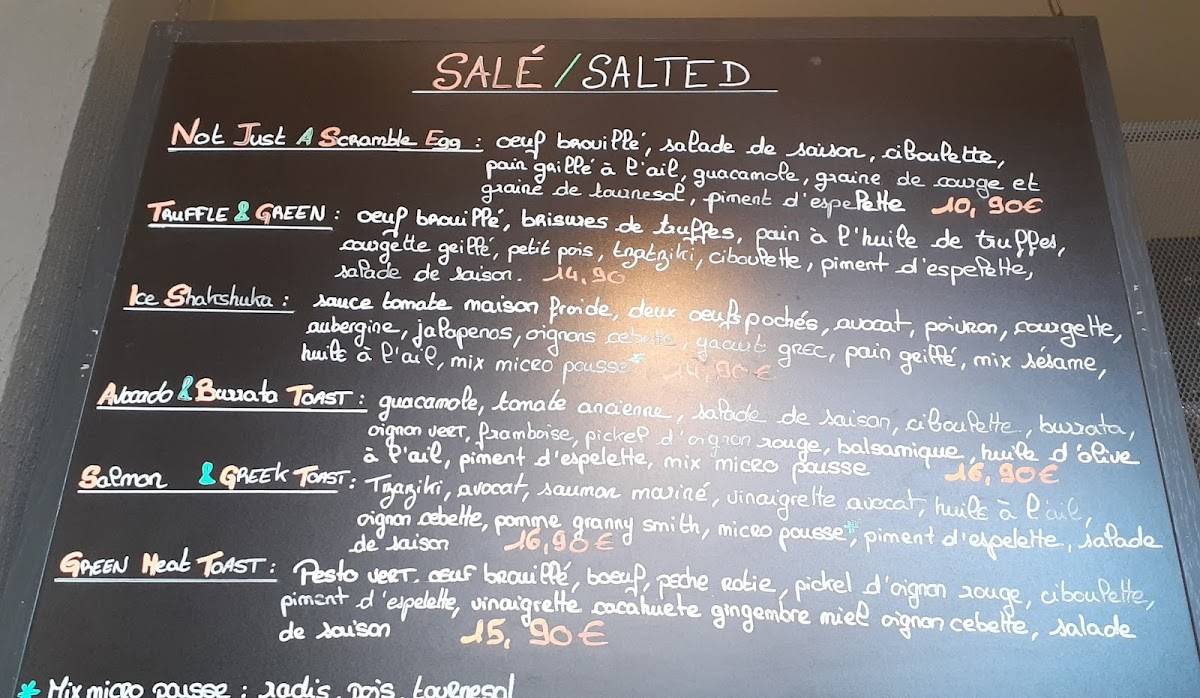 SALÉ / SALTED
Not Just A Scramble Egg : oeuf brouillé, salade de saison, ciboulette,
pain grillé à l'ail, guacamole, graine de courge et
graine de tournesol, piment d'espelette 10,90€
TRUFFLE & GREEN : oeuf brouillé, brisures de truffes, pain à l'huile de truffes,
courgette grillé, petit pois, tzatziki, ciboulette, piment d'espelette,
salade de saison. 14,90
Ice Shakshuka : sauce tomate maison froide, deux oeufs pochés, avocat, poivron, courgette,
aubergine, jalapenos, oignons cebette, yaourt grec, pain grillé, mix sésame,
huile à l'ail, mix micro pousse* 14,90€
Avocado & Burrata TOAST : guacamole, tomate ancienne, salade de saison, ciboulette, burrata,
oignon vert, framboise, pickel d'oignon rouge, balsamique, huile d'olive
à l'ail, piment d'espelette, mix micro pousse 16,90€
Salmon & GREEK TOAST : Tzaziki, avocat, saumon mariné, vinaigrette avocat, huile à l'ail,
oignon cebette, pomme granny smith, micro pousse*, piment d'espelette, salade
de saison 16,90€
GREEN Meat TOAST : Pesto vert, oeuf brouillé, boeuf, peche rotie, pickel d'oignon rouge, ciboulette,
piment d'espelette, vinaigrette cacahuete gingembre miel oignon cebette, salade
de saison 15,90€
* Mix micro pousse : radis, pois, tournesol